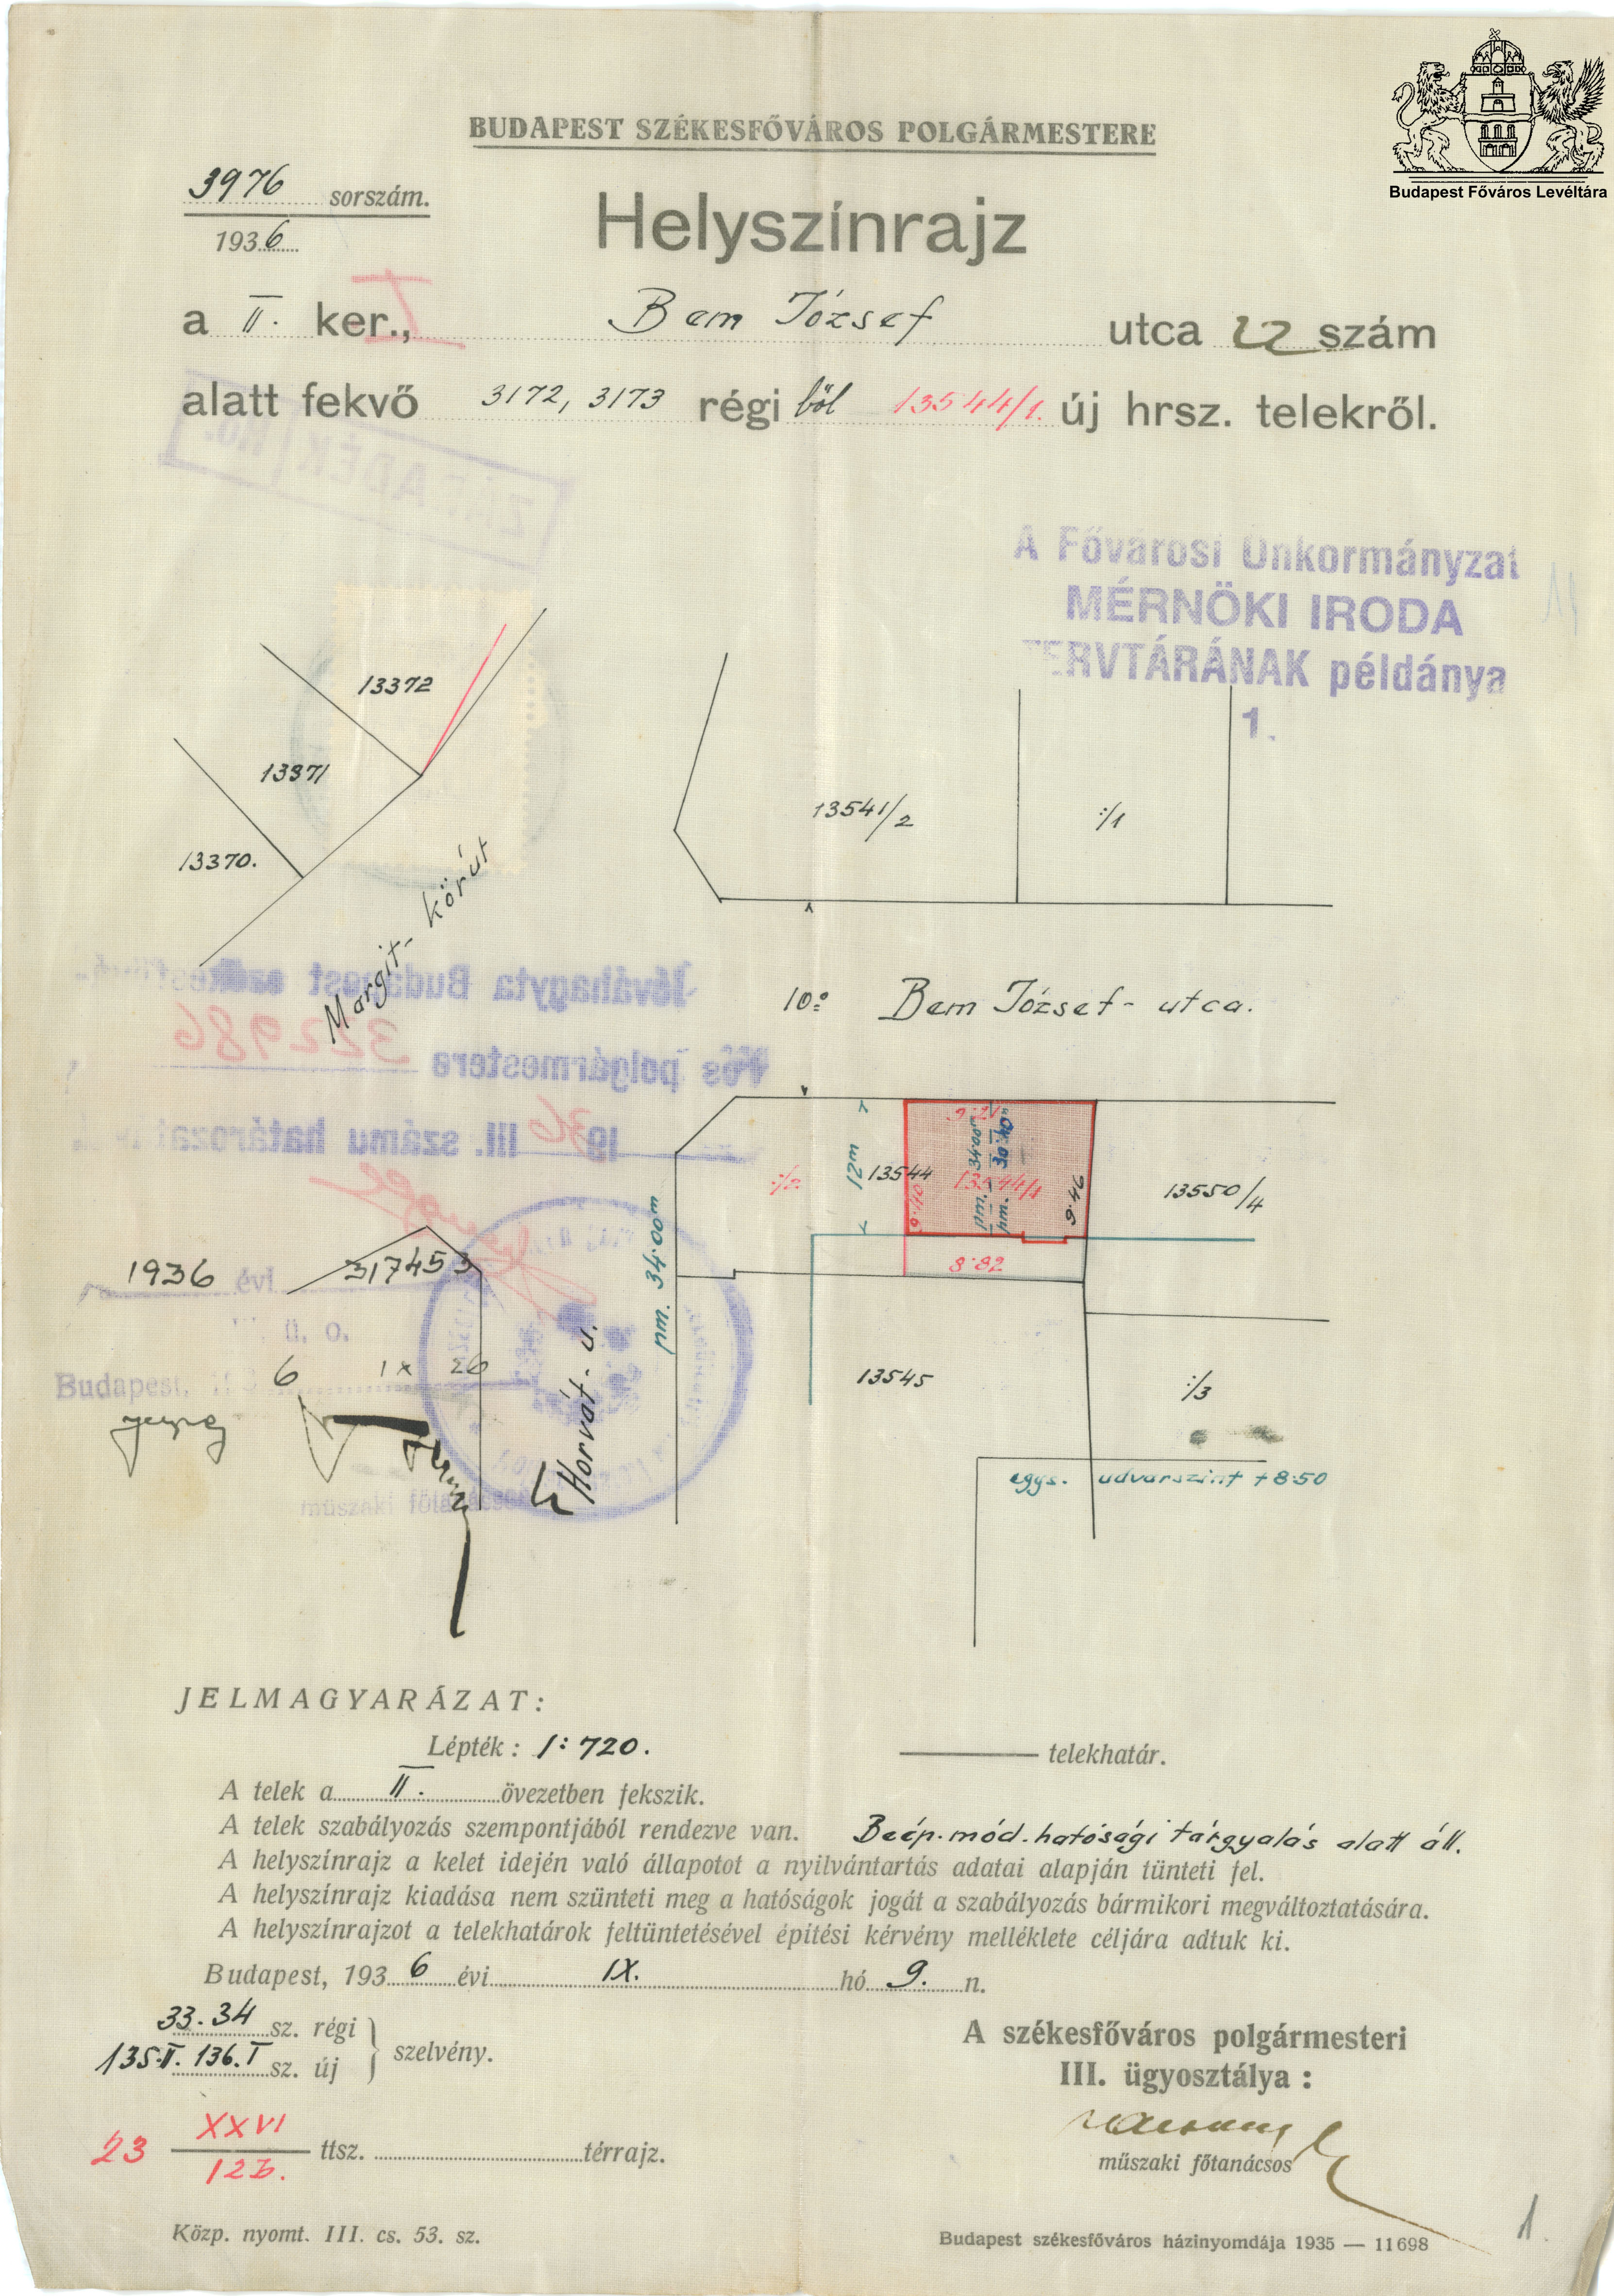 BUDAPEST SZÉKESFŐVÁROS POLGÁRMESTERE
Budapest Főváros Levéltára
3976 sorszám.
1936
Helyszínrajz
I
a II. ker., Bem József utca 22 szám
alatt fekvő 3172, 3173 régi ből 13544/1. új hrsz. telekről.
A Fővárosi Önkormányzat
MÉRNÖKI IRODA
TERVTÁRÁNAK példánya
1.
13372
13371
13370.
Margit-körút
13541/2
:/1
10°
Bem József-utca.
12m
13544
13544/1
pm. 34·00m
pm. 30·40m
9·46
13550/4
8·82
pm. 34·00m
13545
:/3
egys. udvarszint +8·50
Horvát-u.
1936 évi 317453
ü. o.
Budapest, 6 IX 26
műszaki főtanácsos
JELMAGYARÁZAT:
Lépték: 1:720.
telekhatár.
A telek a II. övezetben fekszik.
A telek szabályozás szempontjából rendezve van. Beép. mód. hatósági tárgyalás alatt áll.
A helyszínrajz a kelet idején való állapotot a nyilvántartás adatai alapján tünteti fel.
A helyszínrajz kiadása nem szünteti meg a hatóságok jogát a szabályozás bármikori megváltoztatására.
A helyszínrajzot a telekhatárok feltüntetésével építési kérvény melléklete céljára adtuk ki.
Budapest, 1936 évi IX. hó 9. n.
33-34 sz. régi
135·II. 136.I sz. új
szelvény.
A székesfőváros polgármesteri
III. ügyosztálya:
műszaki főtanácsos
23 XXVI
12b. ttsz. térrajz.
1.
Közp. nyomt. III. cs. 53. sz.
Budapest székesfőváros házinyomdája 1935 — 11698